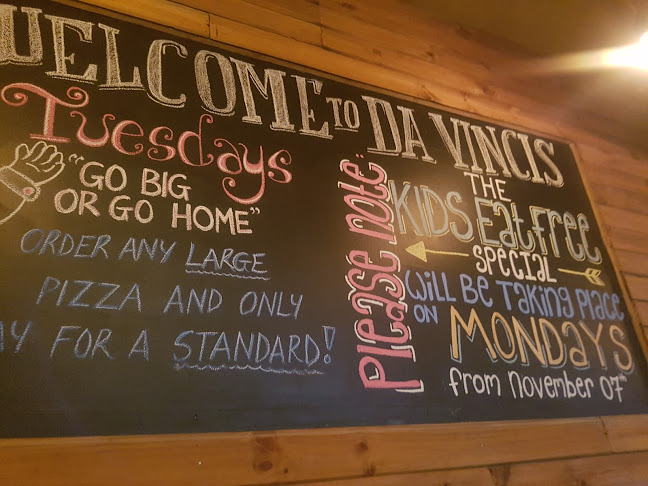 WELCOME TO DA VINCIS
Tuesdays
"GO BIG
OR GO HOME"
ORDER ANY LARGE
PIZZA AND ONLY
FOR A STANDARD!
Please note"
THE
KIDS Eat free
special
Will Be Taking Place
ON MONDAYS
from November 07th